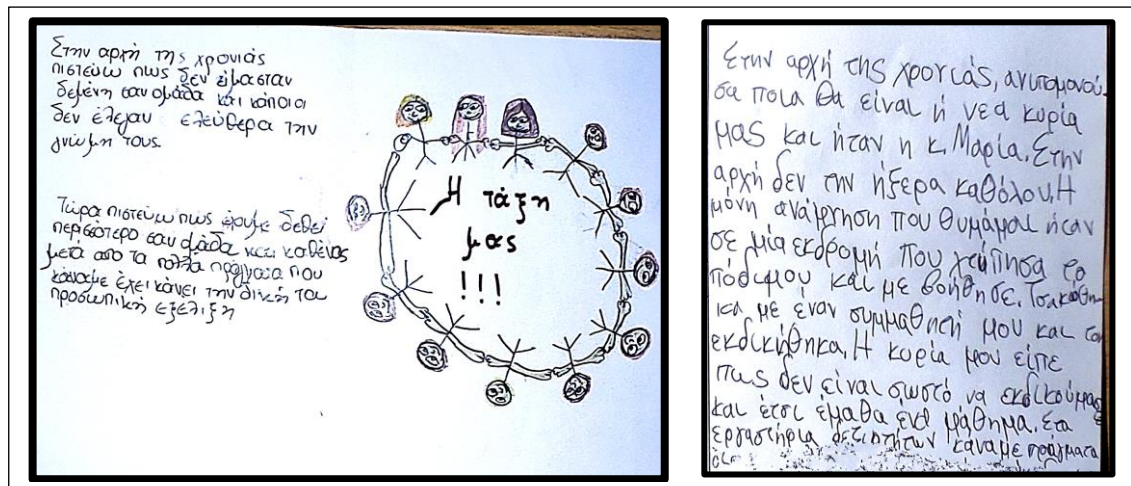 Στην αρχή της χρονιάς
πιστεύω πως δεν είμασταν
δεμένη σαν ομάδα και κάποιοι
δεν έλεγαν ελεύθερα την
γνώμη τους.
Τώρα πιστεύω πως έχουμε δεθεί
περισσότερο σαν ομάδα και καθένας
μετά από τα πολλά πράγματα που
κάναμε έχει κάνει την δική του
προσωπική εξέλιξη
Η τάξη
μας
!!!
Στην αρχή της χρονιάς, ανυπομονού-
σα ποια θα είναι ή νεα κυρία
μας και ήταν η κ. Μαρία. Στην
αρχή δεν την ήξερα καθόλου. Η
μόνη ανάμνηση που θυμάμαι ήταν
σε μία εκδρομή που χτύπησα το
πόδιμου και με βοήθησε. Τσακώθη-
κα με έναν συμμαθητή μου και τον
εκδικήθηκα. Η κυρία μου είπε
πως δεν είναι σωστό να εκδικούμαστε
και έτσι έμαθα ένα μάθημα. Στα
εργαστήρια δεξιοτήτων κάναμε πράγματα